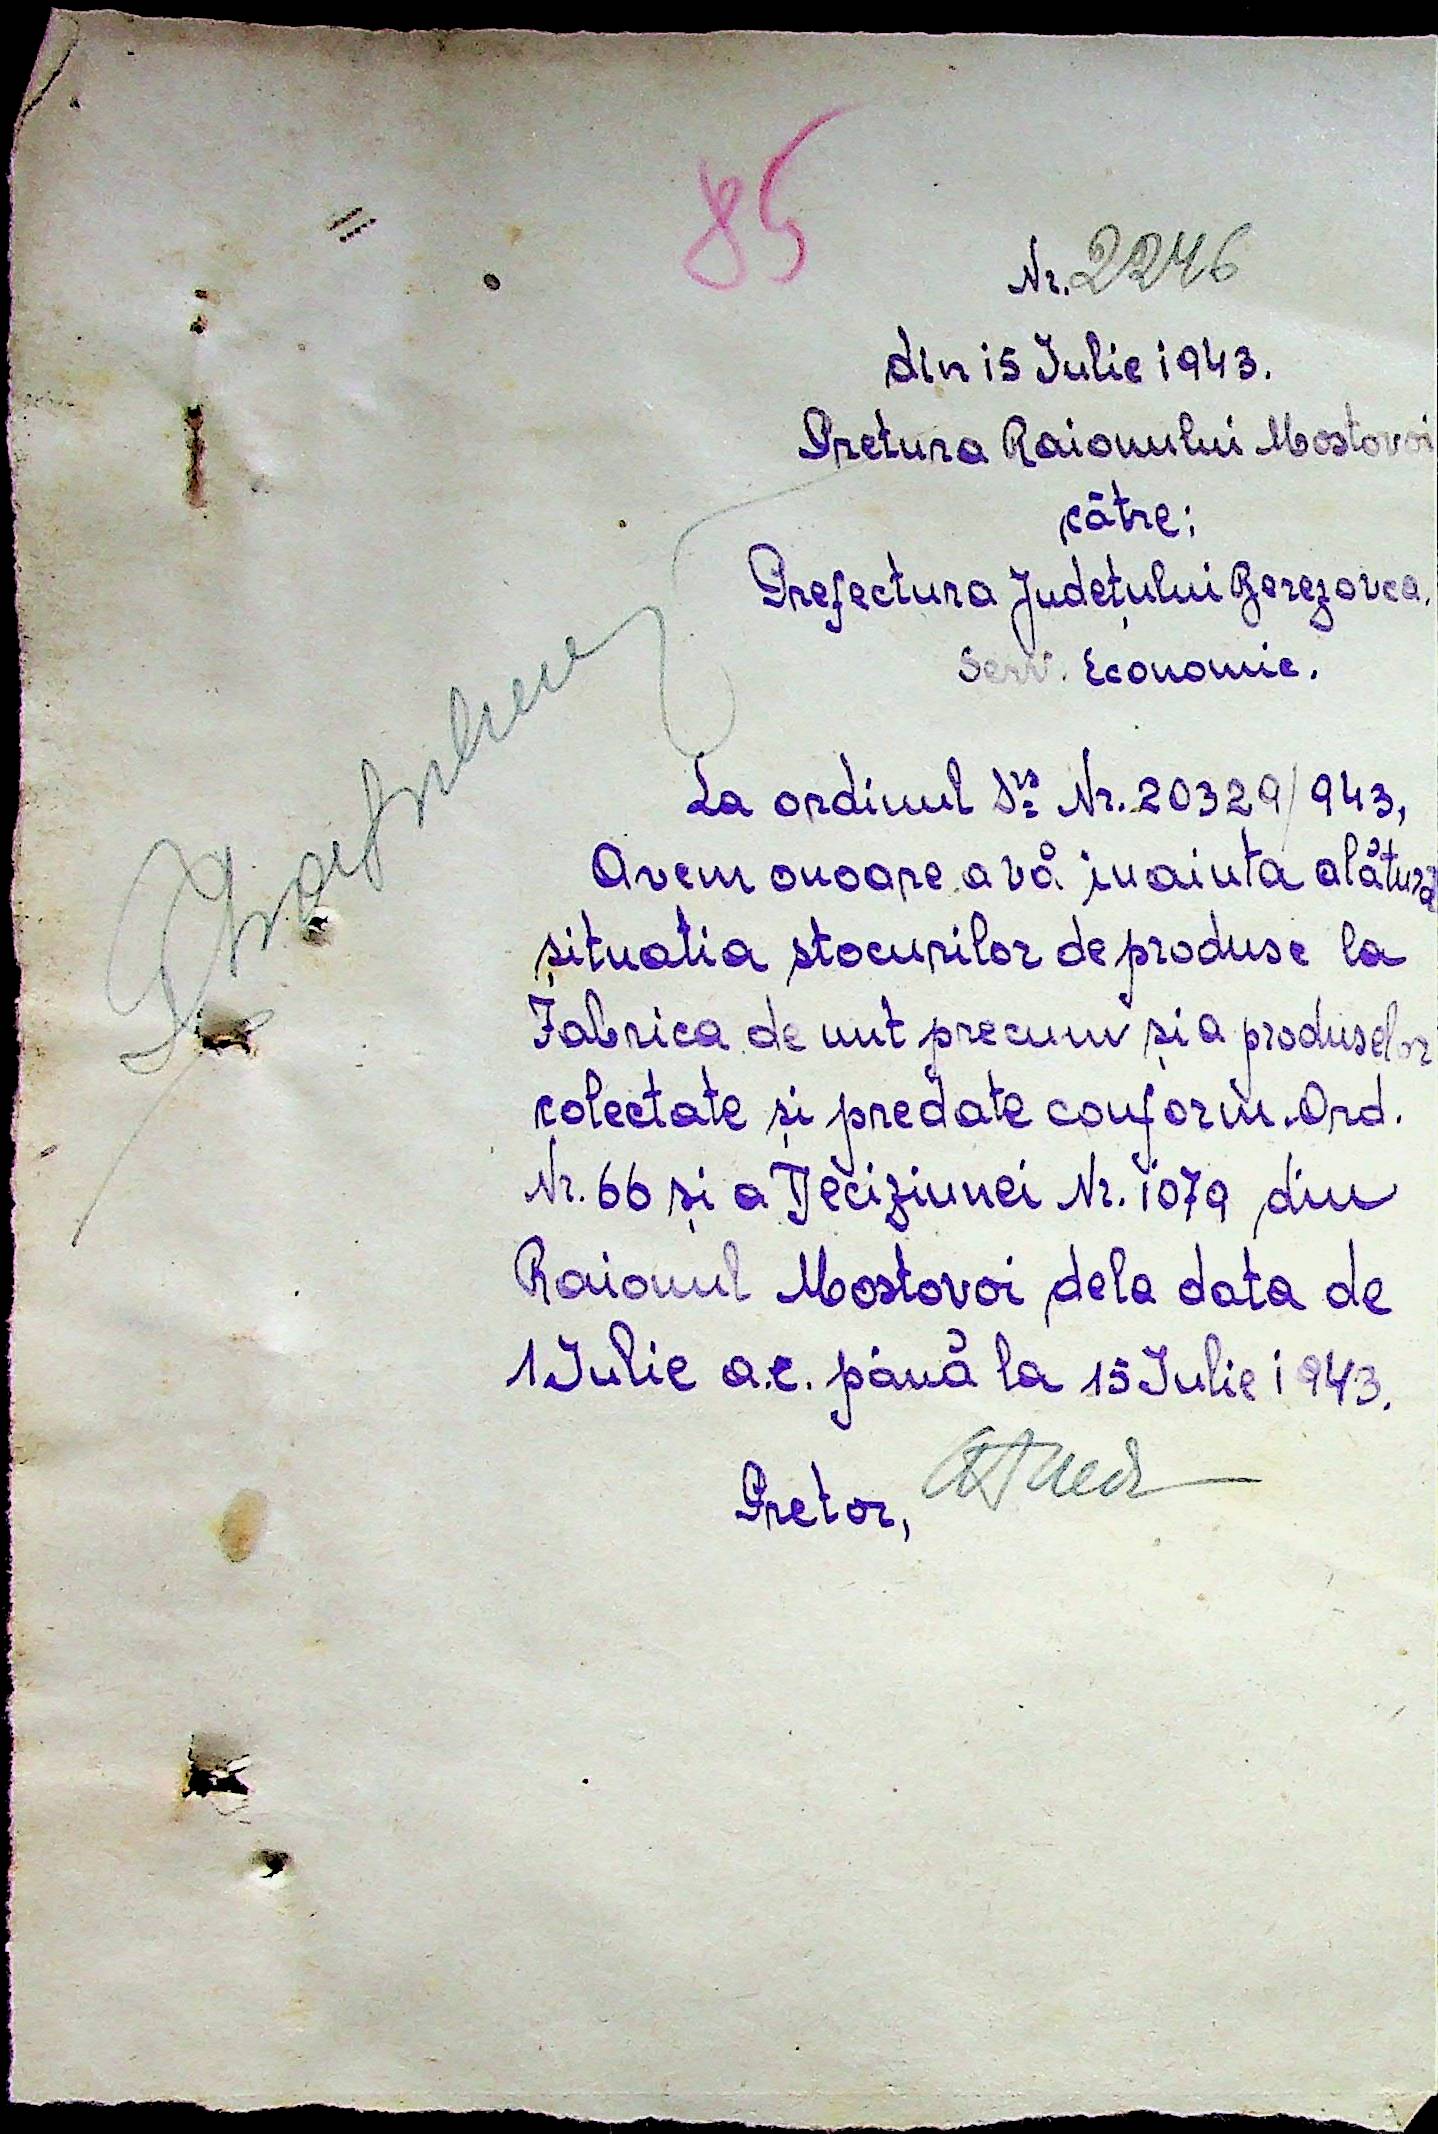 85
Nr. 2246
din 15 Iulie 1943.
Pretura Raionului Mostovoi
către;
Prefectura Județului Berezovca.
Serv. Economic.
La ordinul Dvs Nr. 20329/943,
Avem onoare a vă inainta alătura
situatia stocurilor de produse la
Fabrica de unt precum și a produselor
colectate și predate conform. Ord.
Nr. 66 și a Deciziunei Nr. 1079 din
Raionul Mostovoi dela data de
1 Iulie a.c. până la 15 Iulie 1943.
Pretor,